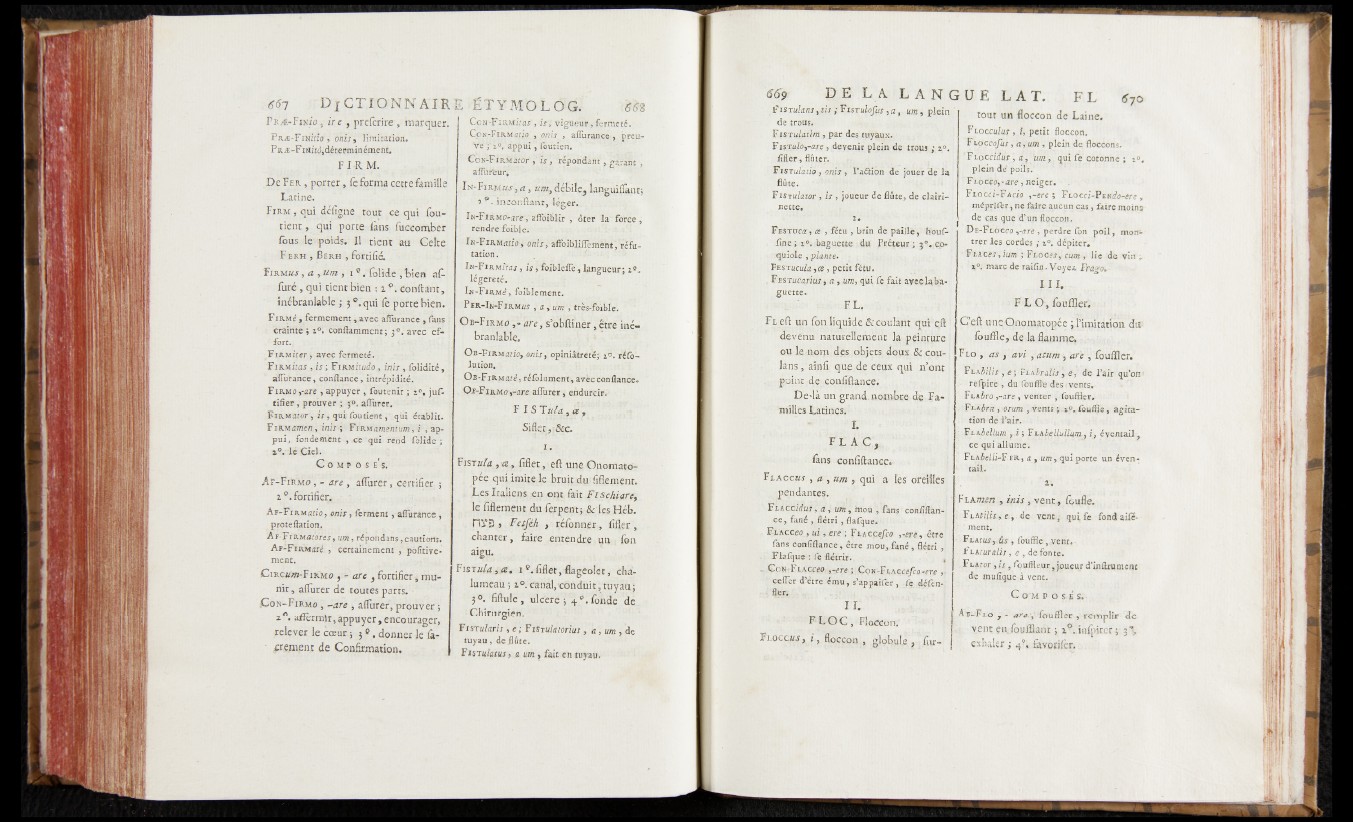 667 DICTIONNAIRE ÉTYMOLOG. 668
PRÆ-FINIO, ire, prescrire, marquer.
PRÆ-FINITIO, onis, limitation.
PRÆ-FINITÒ, déterminément.
FIRM.
De FER, porter, se forma cette famille
Latine.
FIRM, qui désigne tout ce qui sou-
tient, qui porte sans succomber
sous le poids. Il tient au Celte
FERH, BERH, fortifié.
FIRMUS, a, um, 1°. solide, bien as-
suré, qui tient bien : 2°. constant,
inébranlable ; 3°. qui se porte bien.
FIRMÉ, fermement, avec assurance, sans
crainte ; 2°. constamment ; 3°. avec ef-
fort.
FIRMiter, avec fermeté.
FIRMitas, is ; FIRMitudo, inis, solidité,
assurance, constance, intrépidité.
FIRMO,-are, appuyer, soutenir ; 2°. jus-
tifier, prouver ; 3°. assurer.
FIRMator, is, qui soutient, qui établit.
FIRMamen, inis ; FIRMamentum, i, ap-
pui, fondement, ce qui rend solide ;
2°. le Ciel.
COMPOSÉS.
AF-FIRMO, - are, assurer, certifier ;
2°. fortifier.
AF-FIRMatio, onis, serment, assurance,
protestation.
AF-FIRMatores, um, répondans, cautions.
AF-FIRMatè, certainement, positive-
ment.
CIRCum-FIRMO, - are, fortifier, mu-
nir, assurer de toutes parts.
CON-FIRMO, -are, assurer, prouver ;
2°. affermir, appuyer, encourager,
relever le cœur ; 3°. donner le sa-
crement de Confirmation.
CON-FIRMitas, is, vigueur, fermeté.
CON-FIRMatio, onis, assurance, preu-
ve ; 2°. appui, soutien.
CON-FIRMator, is, répondant, garant,
assureur.
IN-FIRMUS, a, um, débile, languissant ;
2°. inconstant, léger.
IN-FIRMO-are, affoiblir, ôter la force,
rendre foible.
IN-FIRMatio, onis, affoiblissement, réfu-
tation.
IN-FIRMitas, is, foiblesse, langueur ; 2°.
légereté.
IN-FIRMÉ, foiblement.
PER-IN-FIRMUS, a, um, très-foible.
OB-FIRMO,- are, s'obstiner, être iné-
branlable.
OB-FIRMatio, onis, opiniâtreté ; 2°. réso-
lution.
OB-FIRMatè, résolument, avec constance.
OB-FIRMO,-are assurer, endurcir.
FISTula, æ,
Siflet, &c.
1.
FISTula, æ, siflet, est une Onomato-
pée qui imite le bruit du siflement.
Les Italiens en ont fait Fischiare,
le siflement du serpent ; & les Héb.
Fetseh, résonner, sifler,
chanter, faire entendre un son
aigu.
FISTula, æ. 1°. siflet, flageolet, cha-
lumeau ; 2°. canal, conduit, tuyau ;
3°. fistule, ulcere ; 4°. sonde de
Chirurgien.
FISTularis, e ; FISTulatorius, a, um, de
tuyau, de flûte.
FISTulatus, a um, fait en tuyau.
669 DE LA LANGUE LAT. FL 670
FISTulans, tis ; FISTulosus, a, um, plein
de trous.
FISTulatim, par des tuyaux.
FISTulo,-are, devenir plein de trous ; 2°.
sifler, flûter.
FISTulatio, onis, l'action de jouer de la
flûte.
FISTulator, is, joueur de flûte, de clairi-
nette.
2.
FESTUCa, æ, fétu, brin de paille, hous-
sine ; 2°. baguette du Préteur ; 3°. co-
quiole, plante.
FESTucula, æ, petit fétu.
FESTucarius, a, um, qui se fait avec la ba-
guette.
FL.
FL est un son liquide & coulant qui est
devenu naturellement la peinture
ou le nom des objets doux & cou-
lans, ainsi que de ceux qui n'ont
point de consistance.
De-là un grand nombre de Fa-
milles Latines.
I.
FLAC,
sans consistance.
FLACCUS, a, um, qui a les oreilles
pendantes.
FLACCidus, a, um, mou, sans consistan-
ce, fané, flétri, flasque.
FLACCEO, ui, ere ; FLACCesco, -ere, être
sans consistance, être mou, fané, flétri,
Flasque : se flétrir.
CON-FLACCEO,-ere ; CON-FLACCesco-ere,
cesser d'être ému, s'appaiser, se désen-
fler.
II.
FLOC, Floccon.
FLOCCUS, i, floccon, globule, sur-
tout un floccon de Laine.
FLOCCulus, i, petit floccon.
FLOCCosus, a, um, plein de floccons.
FLOCCidus, a, um, qui se cotonne ; 2°.
plein de poils.
FLOCCO,-are, neiger.
FLOCCI-FACio,-ere ; FLOCCI-PENdo-ere,
méprifer, ne faire aucun cas, faire moins
de cas que d'un floccon.
DE-FLOCCO,-are, perdre son poil, mon-
trer les cordes ; 2°. dépiter.
FLACes, ium ; FLOCes, cum, lie de vin ;
2°. marc de raisin. Voyez Frago.
III.
FLO, souffler.
C'est une Onomatopée ; l'imitation du
souffle, de la flamme.
FLO, as, avi, atum, are, souffler.
FLAbilis, e ; FLAbralis, e, de l'air qu'on
respire, du souffle des vents.
FLAbro,-are, venter, souffler.
FLAbra, orum, vents ; 2°. souffle, agita-
tion de l'air.
FLAbellum, i ; FLAbellullum, i, éventail,
ce qui allume.
FLAbelli-FER, a, um, qui porte un éven-
tail.
2.
FLAmen, inis, vent, soufle.
FLAtilis, e, de vent, qui se fond aisé-
ment.
FLAtus, ûs, souffle, vent.
FLAturalis, e, de fonte.
FLAtor, is, souffleur, joueur d'instrument
de musique à vent.
COMPOSÉS.
AF-FLO, - are, souffler, remplir de
vent en soufflant ; 2°. inspirer ; 3°.
exhaler ; 4°. favoriser.